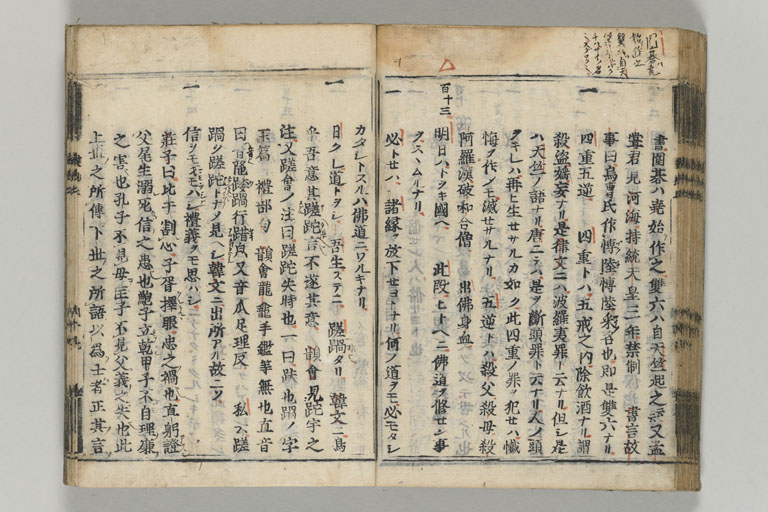 書圍碁ハ堯始作之雙六ハ自天竺起之云又孟
甞君見河海持統天皇三年禁制 書言故
事曰烏曹氏作博陸博陸采名也即是雙六ナリ
一 四重五逆 四重トハ五戒之内除飲酒ナリ謂
殺盗婬妄ナリ是律文ニハ波羅夷罪ト云ナリ但シ是
ハ天竺ノ語ナリ唐ニテハ是ヲ斷頭罪ト云ナリ人ノ頭
ヲキレハ再ヒ生セサルカ如ク此四重ノ罪ヲ犯セハ懺
悔ヲ作ノモ滅セサルナリ 五逆トハ殺父殺母殺
阿羅漢破和合僧 出佛身血
百十三 明日ハトヲキ國ヘ 此段ヒトヘニ佛道ヲ修セン事
ヲスヽムルナリ
一 必トセハ 諸縁ヲ放下セヨトナリ何ノ道ヲモ必モタシ
カタシトスルハ佛道ニワルキナリ
一 日クレ道トヲシ 吾生ステニ 蹉蹋タリ 韓文ニ烏
乎吾意其蹉跎言不遂其意 韻會見跎字之
注又蹉會ノ注曰蹉跎失時也一曰跌也蹋ノ字
玉篇 禮部勻 韻會龍龕手鑑等無也直音
曰音 蹉蹋行皃又音瓜足理皮 私云蹉
蹋ヲ蹉跎トナノ見ヘシ韓文ニ出所アル故ニソ
一 信ヲモマモラシ禮義ヲモ思ハシ
莊子曰比干割心子胥擇眼忠之禍也直躬證
父尾生溺死信之患也鮑子立乾甲子不自理廉
之害也孔子不見母匡子不見父義之失也此
上世之所傳下世之所語以為士者正其言